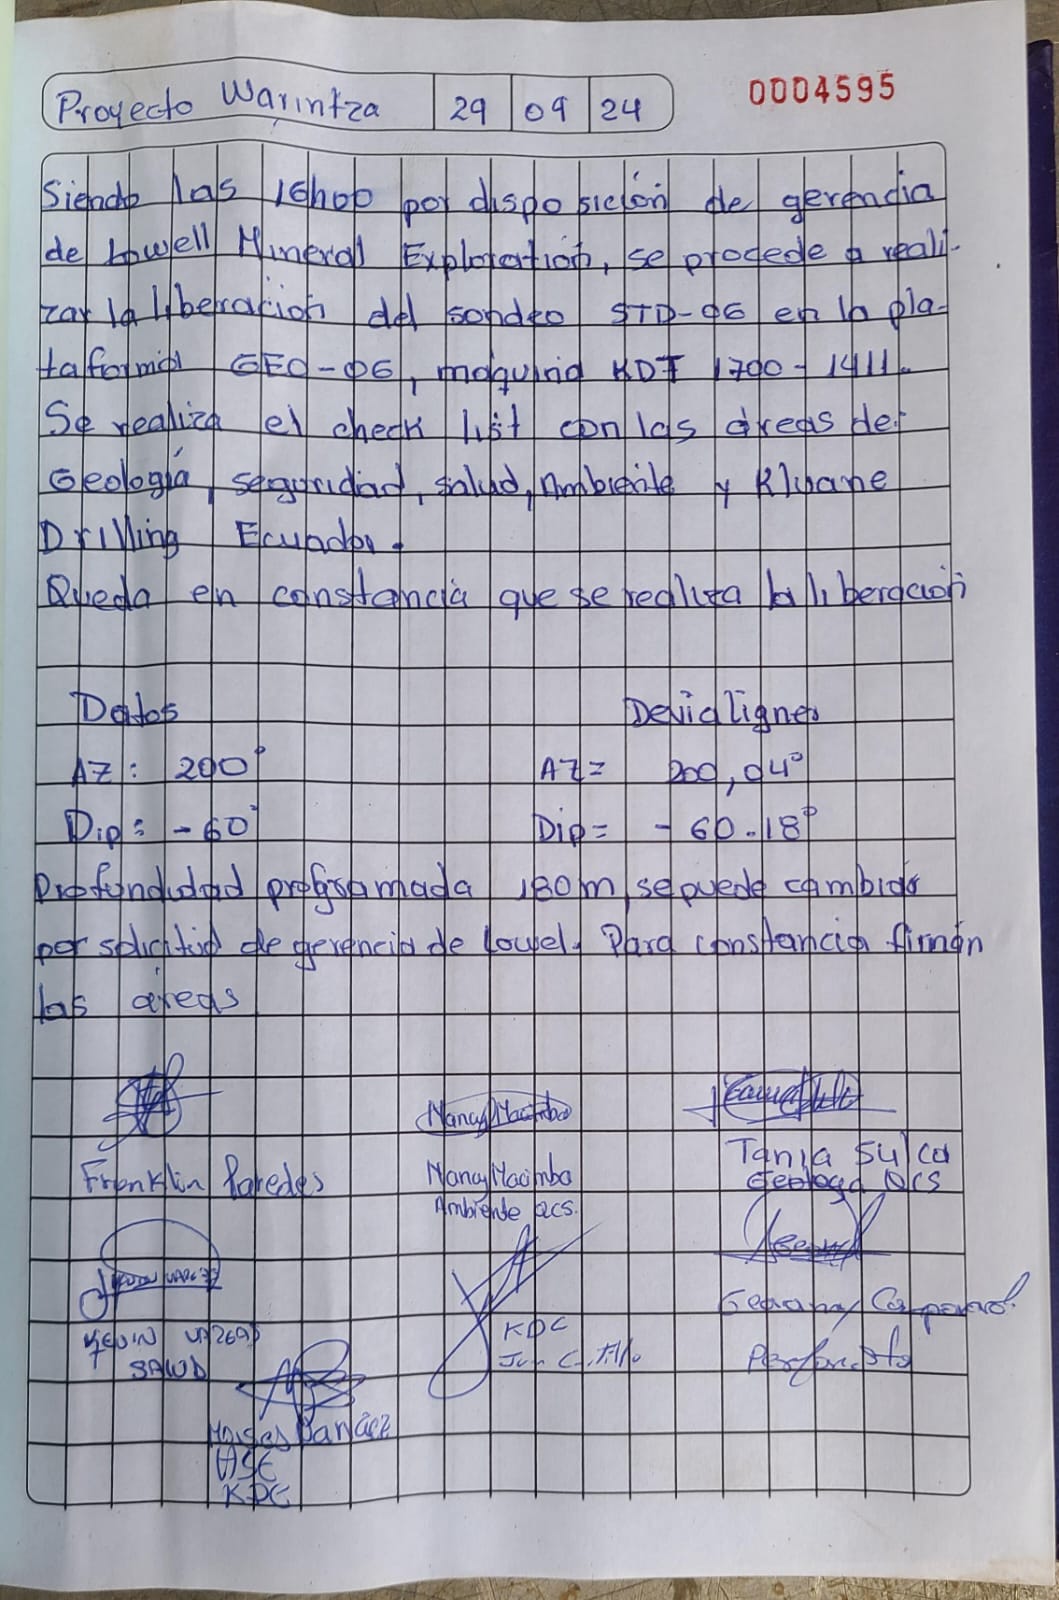 Proyecto Warintza 29 09 24 0004595
Siendo las 16h00 por disposición de gerencia
de Lowell Mineral Exploration, se procede a reali-
zar la liberación del sondeo STD-06 en la pla-
taforma GEO-06, maquina KDT 1700-1411.
Se realiza el check list con las áreas de:
Geología, seguridad, salud, Ambiente y Kluane
Drilling Ecuador.
Queda en constancia que se realiza la liberación
Datos Devialigner
AZ: 200° AZ= 200,04°
Dip= -60° Dip= -60.18°
Profundidad programada 180m, se puede cambiar
por solicitud de gerencia de Lowel. Para constancia firman
las áreas
Nancy Macimba
Franklin Paredes Nancy Macimba Tania Sulca
Ambiente QCS. Geologa QCS
Kevin Vargas KDC
SALUD Perforista
Moises
HSE
KDE